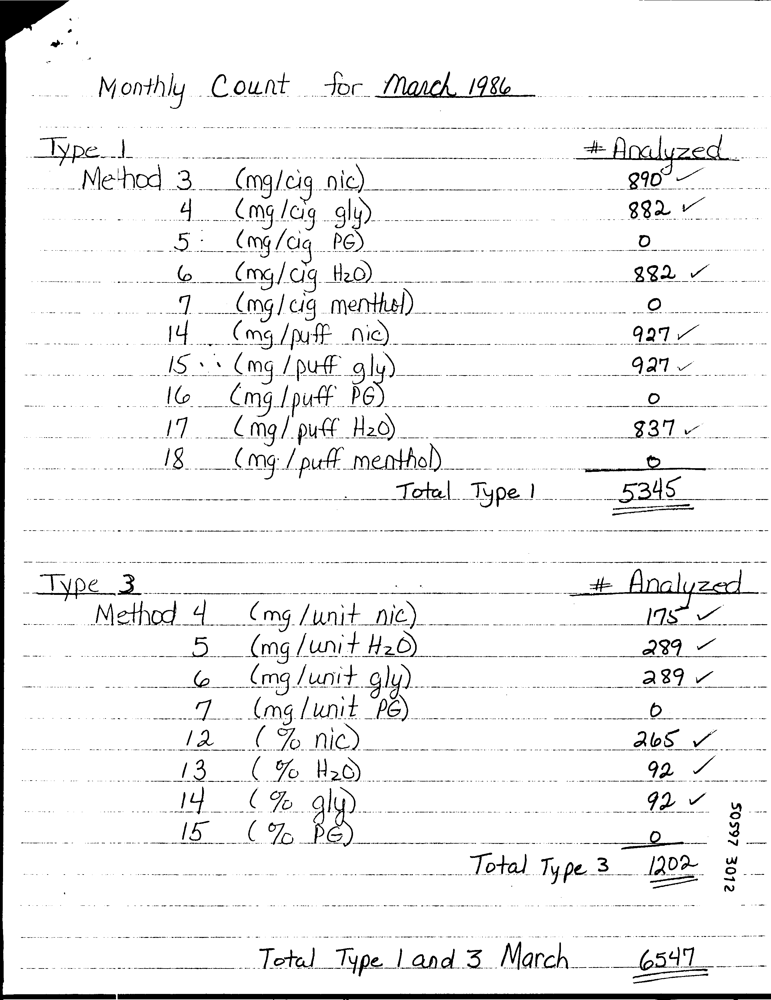 Monthly Count for March 1986
Type 1 # Analyzed
Method 3 (mg/cig nic) 890 ✓
4 (mg/cig gly) 882 ✓
5 (mg/cig PG) 0
6 (mg/cig H2O) 882 ✓
7 (mg/cig menthol) 0
14 (mg/puff nic) 927 ✓
15 (mg/puff gly) 927 ✓
16 (mg/puff PG) 0
17 (mg/puff H2O) 837 ✓
18 (mg/puff menthol) 0
Total Type 1 5345
Type 3 # Analyzed
Method 4 (mg/unit nic) 175 ✓
5 (mg/unit H2O) 289 ✓
6 (mg/unit gly) 289 ✓
7 (mg/unit PG) 0
12 (% nic) 265 ✓
13 (% H2O) 92 ✓
14 (% gly) 92 ✓
15 (% PG) 0
Total Type 3 1202
Total Type 1 and 3 March 6547
50597 3012